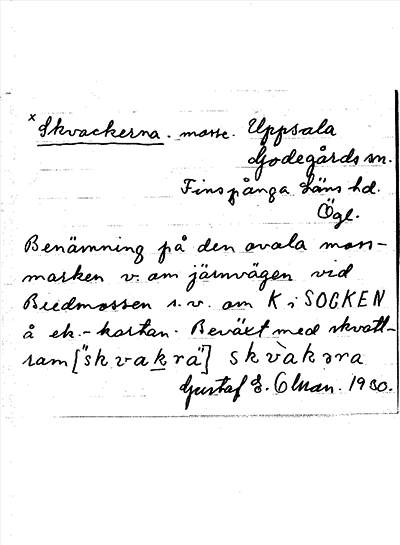 x Skvackerna. mosse. Uppsala
Godegårds sn.
Finspånga läns hd.
Ögl.
Benämning på den ovala moss-
marken v. om järnvägen vid
Bredmossen s.v. om K i SOCKEN
å ek.-kartan. Beväxt med skvatt-
ram ["skvakra"] skvàkəra
Gustaf E. Olson. 1930.